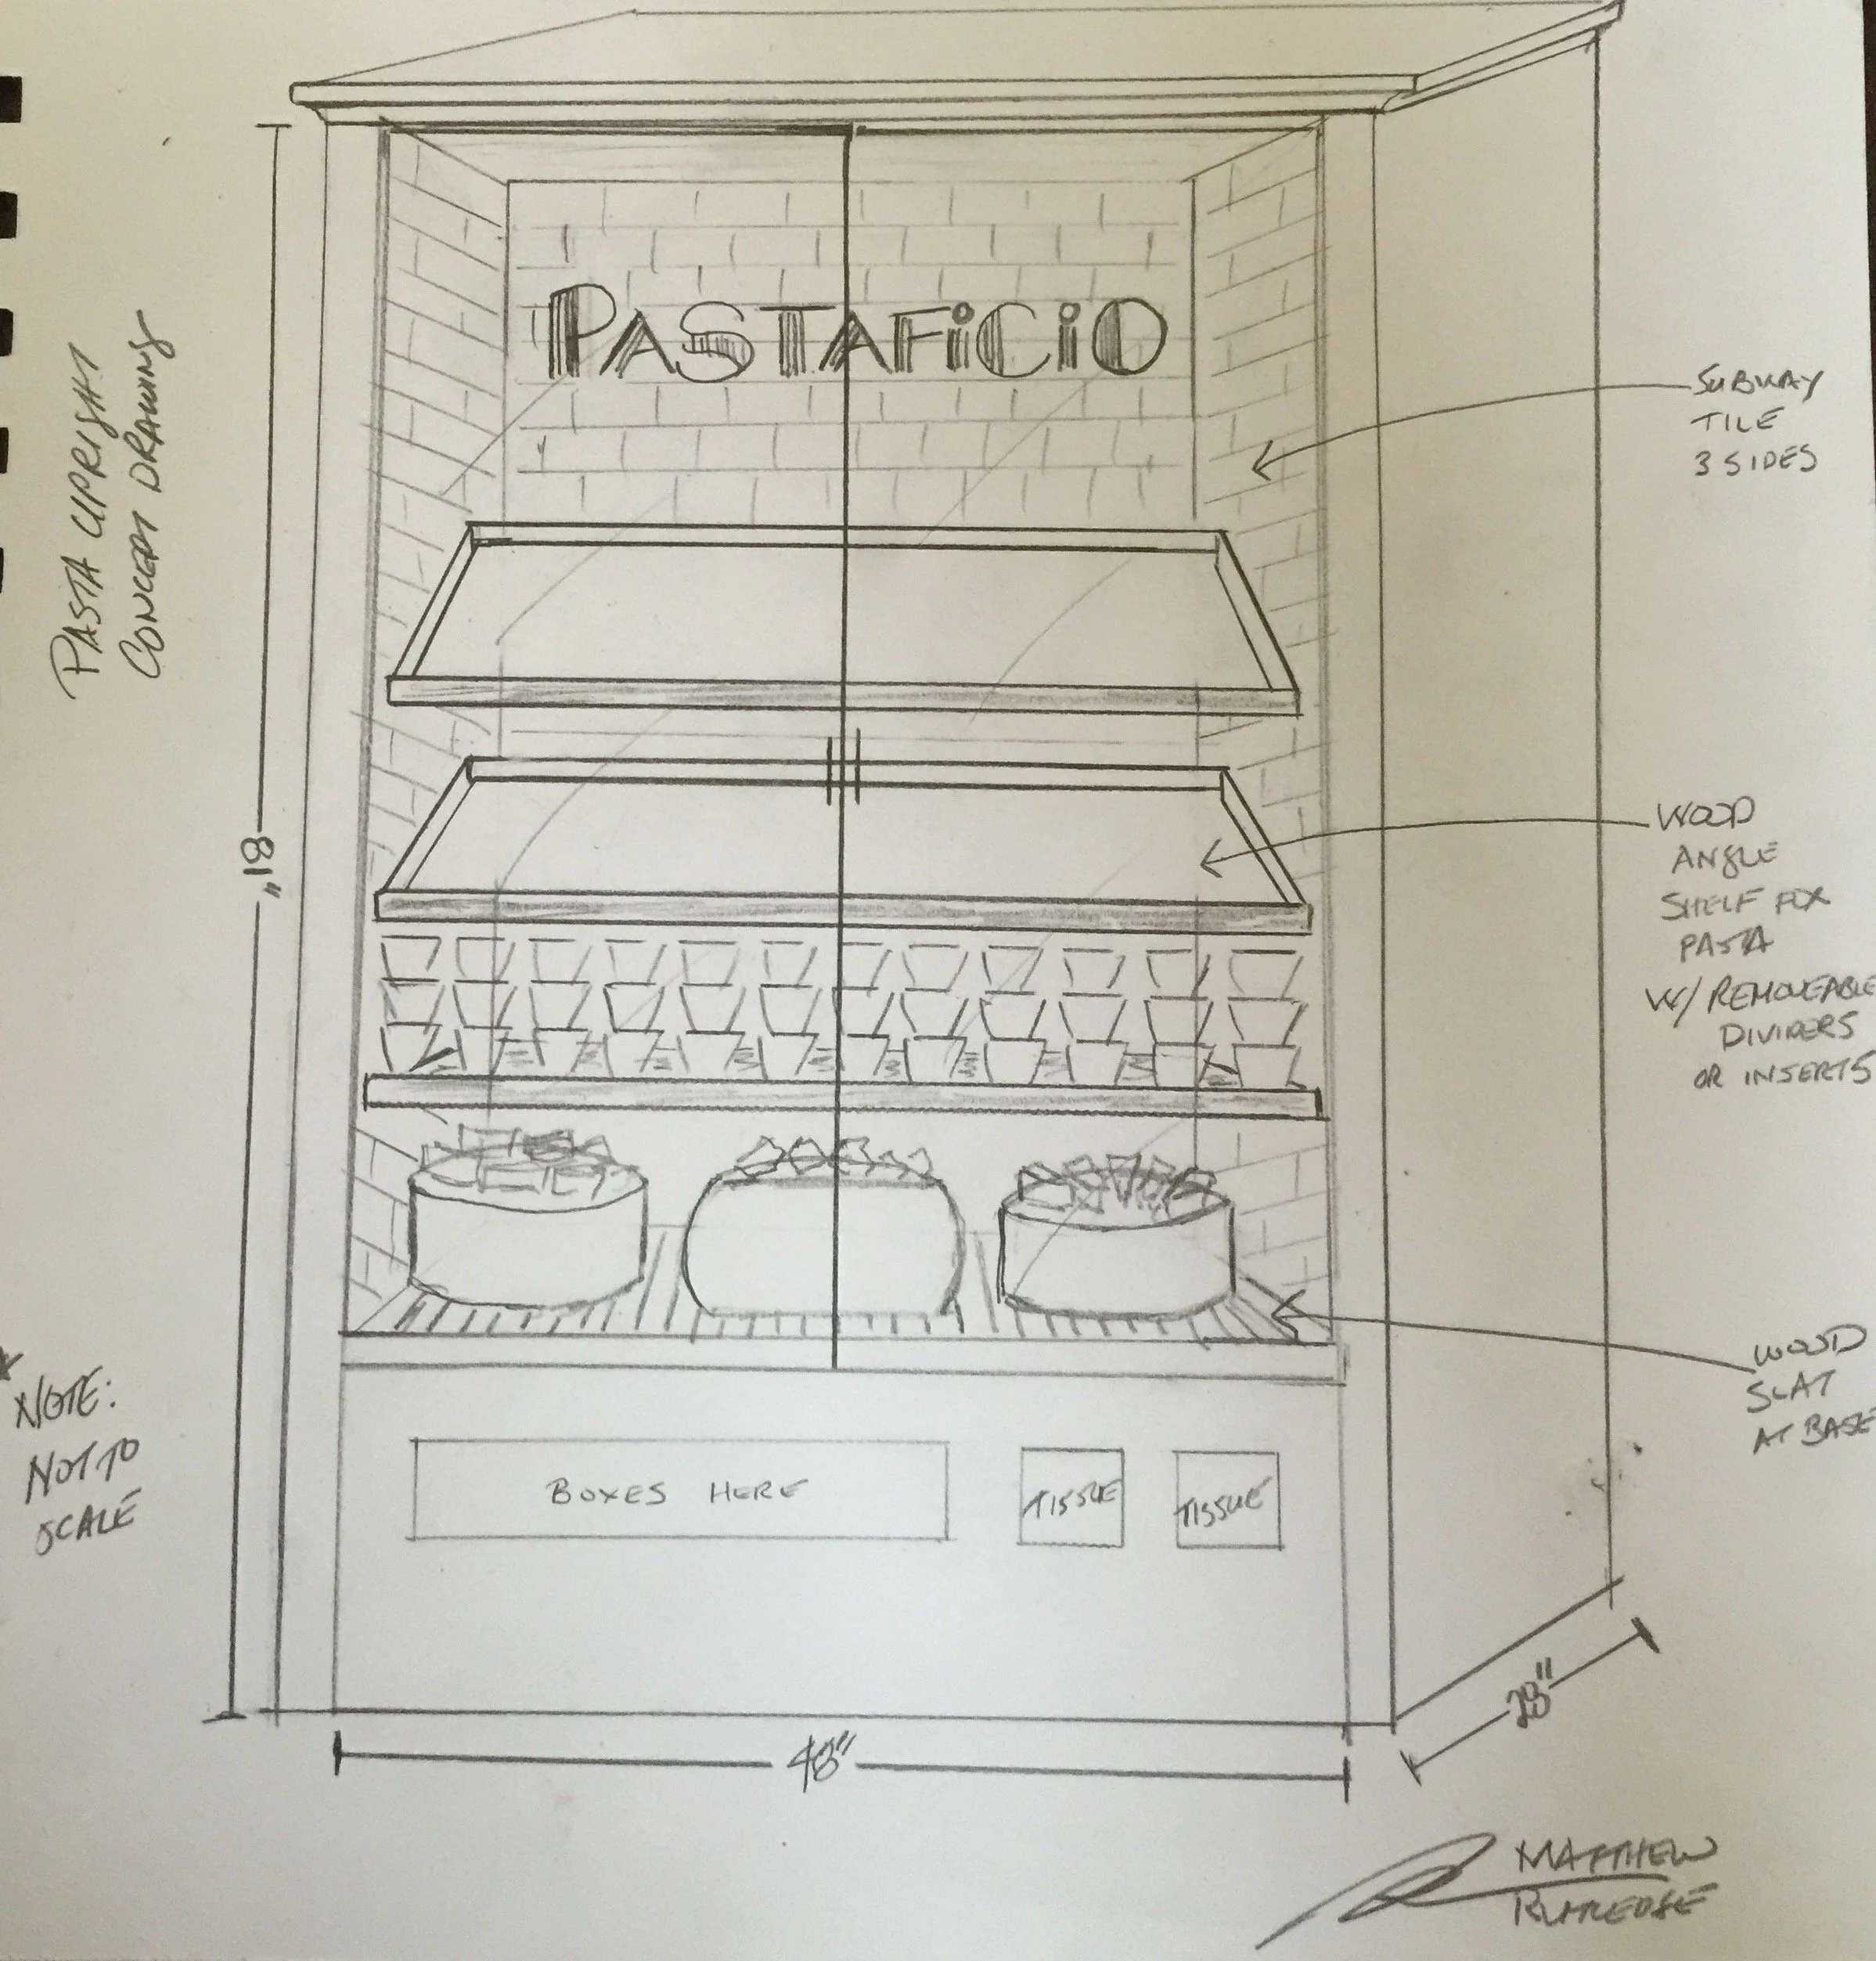 PASTA UPRIGHT
CONCEPT DRAWING
PASTAFiCiO
SUBWAY
TILE
3 SIDES
81"
WOOD
ANGLE
SHELF FOR
PASTA
W/ REMOVEABLE
DIVIDERS
OR INSERTS
WOOD
SLAT
AT BASE
* NOTE:
NOT TO
SCALE
BOXES HERE
TISSUE
TISSUE
48"
28"
MATTHEW
RUTLEDGE